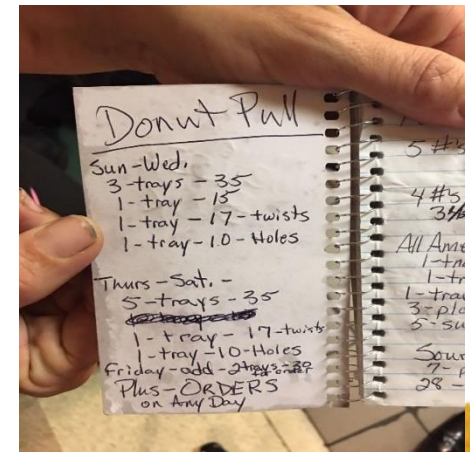 Donut Pull
Sun-Wed.
3-trays - 35
1-tray - 15
1-tray - 17-twists
1-tray - 10-Holes
Thurs-Sat. -
5-trays - 35
1-tray - 17-twists
1-tray - 10-Holes
Friday-add-2trays-30
Plus-ORDERS
on Any Day
5 #3
4 #5
All Ame
1-tra
1-tr
1-tray
3-pla
5-su
Sour
7-p
28 -